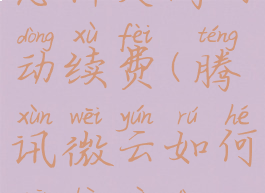 dòng xù fèi téng
动续费(腾
xùn wēi yún rú hé
讯微云如何